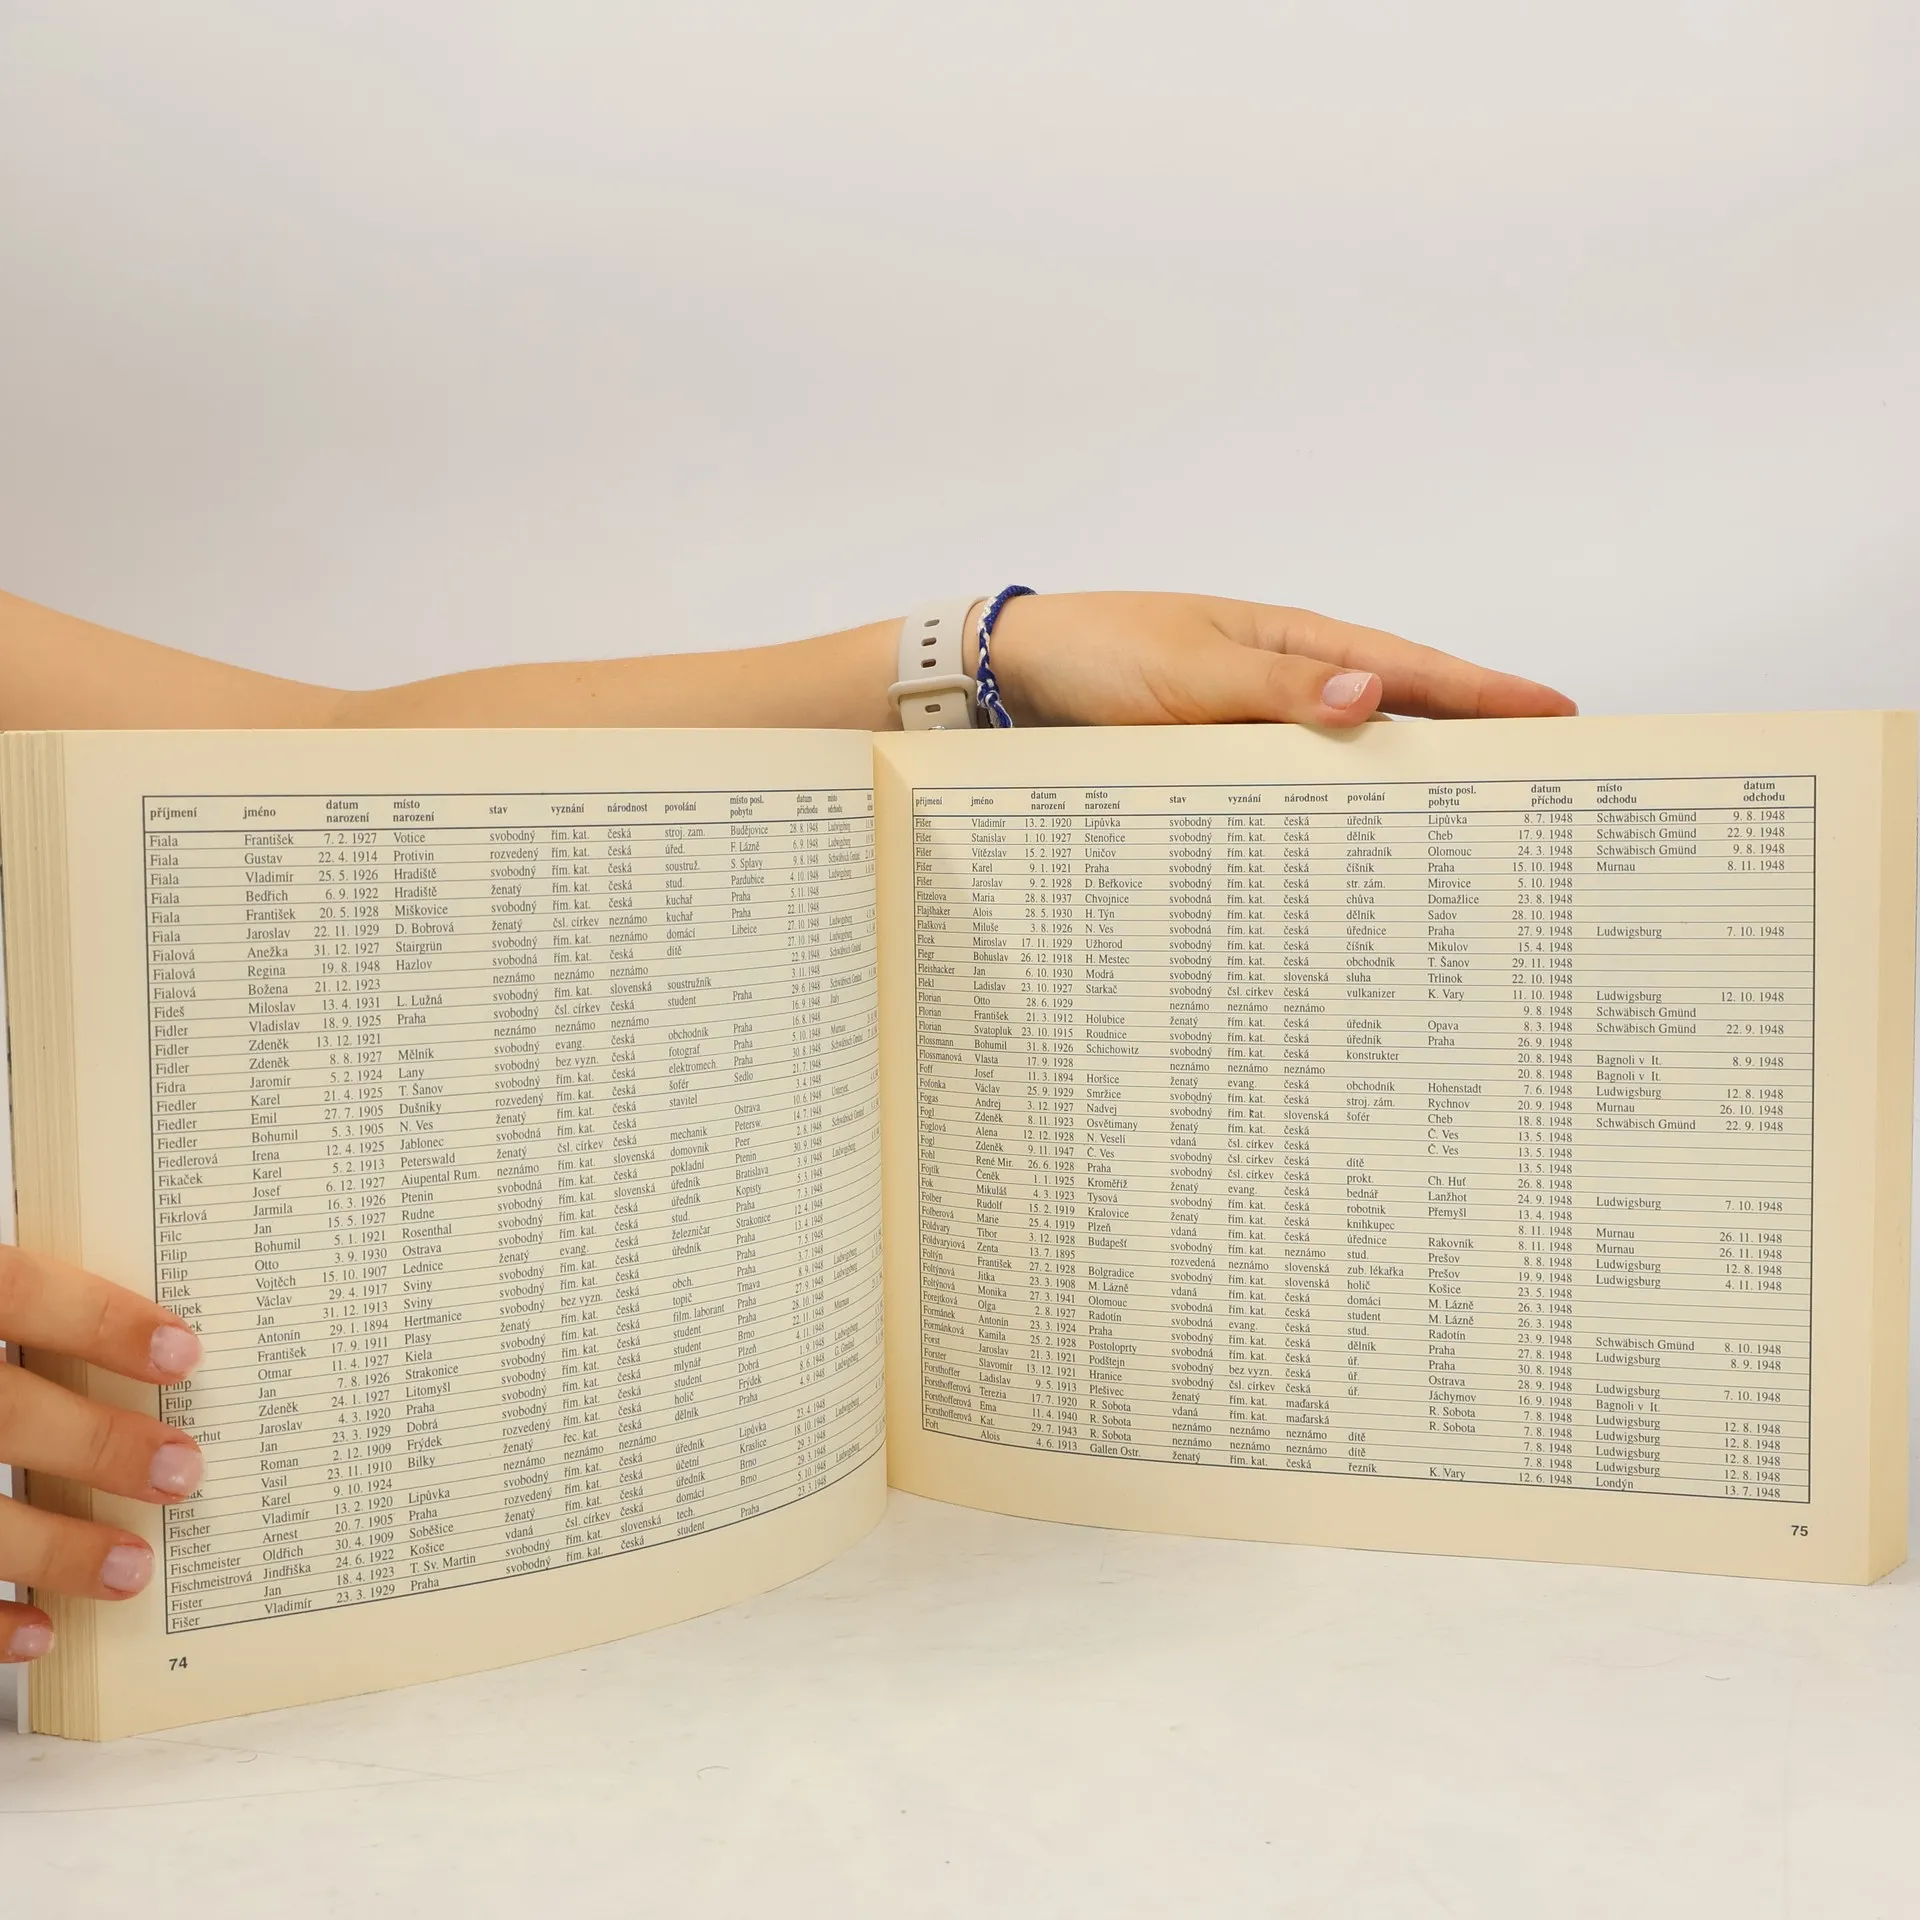 příjmení jméno datum narození místo narození stav vyznání národnost povolání místo posl. pobytu datum příchodu místo odchodu
Fiala František 7. 2. 1927 Votice svobodný řím. kat. česká stroj. zam. Budějovice 28. 8. 1948 Ludwigsburg
Fiala Gustav 22. 4. 1914 Protivin rozvedený řím. kat. česká úřed. F. Lázně 6. 9. 1948 Ludwigsburg
Fiala Vladimír 25. 5. 1926 Hradiště svobodný řím. kat. česká soustruž. S. Splavy 9. 8. 1948 Schwäbisch Gmünd
Fiala Bedřich 6. 9. 1922 Hradiště ženatý řím. kat. česká stud. Pardubice 4. 10. 1948 Ludwigsburg
Fiala František 20. 5. 1928 Miškovice svobodný řím. kat. česká kuchař Praha 5. 11. 1948
Fiala Jaroslav 22. 11. 1929 D. Bobrová ženatý čsl. církev neznámo kuchař Praha 22. 11. 1948
Fialová Anežka 31. 12. 1927 Stairgrün svobodný řím. kat. neznámo domácí Libeice 27. 10. 1948 Ludwigsburg
Fialová Regina 19. 8. 1948 Hazlov svobodná řím. kat. česká dítě 27. 10. 1948 Ludwigsburg
Fialová Božena 21. 12. 1923 neznámo neznámo neznámo 22. 9. 1948 Schwäbisch Gmünd
Fideš Miloslav 13. 4. 1931 L. Lužná svobodný řím. kat. slovenská soustružník 3. 11. 1948
Fidler Vladislav 18. 9. 1925 Praha svobodný čsl. církev česká student Praha 29. 6. 1948 Schwäbisch Gmünd
Fidler Zdeněk 13. 12. 1921 neznámo neznámo neznámo 16. 9. 1948 Italy
Fidler Zdeněk 8. 8. 1927 Mělník svobodný evang. česká obchodník Praha 16. 8. 1948
Fidra Jaromír 5. 2. 1924 Lany svobodný bez vyzn. česká fotograf Praha 5. 10. 1948 Murnau
Fiedler Karel 21. 4. 1925 T. Šanov svobodný řím. kat. česká elektromech. Praha 30. 8. 1948 Schwäbisch Gmünd
Fiedler Emil 27. 7. 1905 Dušníky rozvedený řím. kat. česká šofér Sedlo 21. 7. 1948
Fiedler Bohumil 5. 3. 1905 N. Ves ženatý řím. kat. česká stavitel 3. 4. 1948
Fiedlerová Irena 12. 4. 1925 Jablonec svobodná řím. kat. česká Ostrava 10. 6. 1948
Fikaček Karel 5. 2. 1913 Peterswald ženatý čsl. církev česká mechanik Petersw. 14. 7. 1948
Fikl Josef 6. 12. 1927 Aiupental Rum. neznámo řím. kat. slovenská domovník Peer 2. 8. 1948 Schwäbisch Gmünd
Fikrlová Jarmila 16. 3. 1926 Ptenin svobodná řím. kat. česká pokladní Ptenin 30. 9. 1948
Filc Jan 15. 5. 1927 Rudne svobodný řím. kat. slovenská úředník Bratislava 3. 9. 1948 Ludwigsburg
Filip Bohumil 5. 1. 1921 Rosenthal svobodný řím. kat. česká úředník Kopisty 5. 3. 1948
Filip Otto 3. 9. 1930 Ostrava svobodný řím. kat. česká stud. Strakonice 7. 3. 1948
Filek Vojtěch 15. 10. 1907 Lednice ženatý evang. česká železničar Praha 12. 4. 1948
Václav 29. 4. 1917 Sviny svobodný řím. kat. česká úředník Praha 13. 4. 1948
Jan 31. 12. 1913 Sviny svobodný bez vyzn. česká Praha 7. 5. 1948
Antonín 29. 1. 1894 Hertmanice ženatý řím. kat. česká obch. Trnava 3. 7. 1948 Ludwigsburg
František 17. 9. 1911 Plasy svobodný řím. kat. česká topič Praha 8. 9. 1948 Ludwigsburg
Otmar 11. 4. 1927 Kiela svobodný řím. kat. česká film. laborant Praha 27. 9. 1948 Ludwigsburg
Jan 7. 8. 1926 Strakonice svobodný řím. kat. česká student Brno 28. 10. 1948 Murnau
Filip Zdeněk 24. 1. 1927 Litomyšl svobodný řím. kat. česká student Plzeň 22. 11. 1948
Filka Jaroslav 4. 3. 1920 Praha svobodný řím. kat. česká mlynář Dobrá 4. 11. 1948 Ludwigsburg
Jan 23. 3. 1929 Dobrá svobodný řím. kat. česká student Frýdek 1. 9. 1948
Roman 2. 12. 1909 Frýdek rozvedený řím. kat. česká holič Praha 8. 6. 1948 Ludwigsburg
Vasil 23. 11. 1910 Bilky ženatý řec. kat. česká dělník 4. 9. 1948
Karel 9. 10. 1924 neznámo neznámo neznámo
First Vladimír 13. 2. 1920 Lipůvka svobodný řím. kat. česká úředník Lipůvka 23. 4. 1948
Fischer Arnest 20. 7. 1905 Praha rozvedený řím. kat. česká účetní Kraslice 18. 10. 1948 Ludwigsburg
Fischer Oldřich 30. 4. 1909 Soběšice ženatý řím. kat. česká úředník Brno 29. 3. 1948
Fischmeister Jindřiška 24. 6. 1922 Košice vdaná čsl. církev česká domácí Brno 29. 3. 1948
Fischmeistrová Jan 18. 4. 1923 T. Sv. Martin svobodný řím. kat. slovenská tech. 5. 10. 1948 Ludwigsburg
Fister Vladimír 23. 3. 1929 Praha svobodný řím. kat. česká student Praha 23. 3. 1948
Fišer
74
příjmení jméno datum narození místo narození stav vyznání národnost povolání místo posl. pobytu datum příchodu místo odchodu datum odchodu
Fišer Vladimír 13. 2. 1920 Lipůvka svobodný řím. kat. česká úředník Lipůvka 8. 7. 1948 Schwäbisch Gmünd 9. 8. 1948
Fišer Stanislav 1. 10. 1927 Stenořice svobodný řím. kat. česká dělník Cheb 17. 9. 1948 Schwäbisch Gmünd 22. 9. 1948
Fišer Vítězslav 15. 2. 1927 Uničov svobodný řím. kat. česká zahradník Olomouc 24. 3. 1948 Schwäbisch Gmünd 9. 8. 1948
Fišer Karel 9. 1. 1921 Praha svobodný řím. kat. česká číšník Praha 15. 10. 1948 Murnau 8. 11. 1948
Fišer Jaroslav 9. 2. 1928 D. Beřkovice svobodný řím. kat. česká str. zám. Mirovice 5. 10. 1948
Fitzelova Maria 28. 8. 1937 Chvojnice svobodná řím. kat. česká chůva Domažlice 23. 8. 1948
Flajšhaker Alois 28. 5. 1930 H. Týn svobodný řím. kat. česká dělník Sadov 28. 10. 1948
Flašková Miluše 3. 8. 1926 N. Ves svobodná řím. kat. česká úřednice Praha 27. 9. 1948 Ludwigsburg 7. 10. 1948
Flcek Miroslav 17. 11. 1929 Užhorod svobodný řím. kat. česká číšník Mikulov 15. 4. 1948
Flegr Bohuslav 26. 12. 1918 H. Mestec svobodný řím. kat. česká obchodník T. Šanov 29. 11. 1948
Fleishacker Jan 6. 10. 1930 Modrá svobodný řím. kat. slovenská sluha Trlinok 22. 10. 1948
Flekl Ladislav 23. 10. 1927 Starkač svobodný čsl. církev česká vulkanizer K. Vary 11. 10. 1948 Ludwigsburg 12. 10. 1948
Florian Otto 28. 6. 1929 neznámo neznámo neznámo 9. 8. 1948 Schwäbisch Gmünd
Florian František 21. 3. 1912 Holubice ženatý řím. kat. česká úředník Opava 8. 3. 1948 Schwäbisch Gmünd 22. 9. 1948
Florian Svatopluk 23. 10. 1915 Roudnice svobodný řím. kat. česká úředník Praha 26. 9. 1948
Flossmann Bohumil 31. 8. 1926 Schichowitz svobodný řím. kat. česká konstrukter 20. 8. 1948 Bagnoli v It. 8. 9. 1948
Flossmanová Vlasta 17. 9. 1928 neznámo neznámo neznámo 20. 8. 1948 Bagnoli v It.
Foff Josef 11. 3. 1894 Horšice ženatý evang. česká obchodník Hohenstadt 7. 6. 1948 Ludwigsburg 12. 8. 1948
Fofonka Václav 25. 9. 1929 Smržice svobodný řím. kat. česká stroj. zám. Rychnov 20. 9. 1948 Murnau 26. 10. 1948
Fogas Andrej 3. 12. 1927 Nadvej svobodný řím. kat. slovenská šofér Cheb 18. 8. 1948 Schwäbisch Gmünd 22. 9. 1948
Fogl Zdeněk 8. 11. 1923 Osvětimany ženatý řím. kat. česká Č. Ves 13. 5. 1948
Foglová Alena 12. 12. 1928 N. Veselí vdaná čsl. církev česká Č. Ves 13. 5. 1948
Fogl Zdeněk 9. 11. 1947 Č. Ves svobodný čsl. církev česká dítě 13. 5. 1948
Fohl René Mir. 26. 6. 1928 Praha svobodný čsl. církev česká prokt. Ch. Huť 26. 8. 1948
Fojtík Čeněk 1. 1. 1925 Kroměříž ženatý evang. česká bednář Lanžhot 24. 9. 1948 Ludwigsburg 7. 10. 1948
Fok Mikuláš 4. 3. 1923 Tysová svobodný řím. kat. česká robotnik Přemyšl 13. 4. 1948
Folber Rudolf 15. 2. 1919 Kralovice ženatý řím. kat. česká knihkupec 8. 11. 1948 Murnau 26. 11. 1948
Folberová Marie 25. 4. 1919 Plzeň vdaná řím. kat. česká úřednice Rakovník 8. 11. 1948 Murnau 26. 11. 1948
Földvary Tibor 3. 12. 1928 Budapešť svobodný řím. kat. neznámo stud. Prešov 8. 8. 1948 Ludwigsburg 12. 8. 1948
Földvaryiová Zenta 13. 7. 1895 rozvedená neznámo slovenská zub. lékařka Prešov 19. 9. 1948 Ludwigsburg 4. 11. 1948
Foltýn František 27. 2. 1928 Bolgradice svobodný řím. kat. slovenská holič Košice 23. 5. 1948
Foltýnová Jitka 23. 3. 1908 M. Lázně vdaná řím. kat. česká domácí M. Lázně 26. 3. 1948
Foltýnová Monika 27. 3. 1941 Olomouc svobodná řím. kat. česká student M. Lázně 26. 3. 1948
Forejtková Olga 2. 8. 1927 Praha svobodná evang. česká stud. Radotín 23. 9. 1948 Schwäbisch Gmünd 8. 10. 1948
Formánek Antonín 23. 3. 1924 Postoloprty svobodný řím. kat. česká dělník Praha 27. 8. 1948 Ludwigsburg 8. 9. 1948
Formánková Kamila 25. 2. 1928 Podštejn svobodná řím. kat. česká úř. Praha 30. 8. 1948
Forst Jaroslav 21. 3. 1921 Hranice svobodný bez vyzn. česká úř. Ostrava 28. 9. 1948 Ludwigsburg 7. 10. 1948
Forster Slavomír 13. 12. 1921 Plešivec svobodný čsl. církev česká úř. Jáchymov 16. 9. 1948 Bagnoli v It.
Forsthoffer Ladislav 9. 5. 1913 R. Sobota ženatý řím. kat. maďarská R. Sobota 7. 8. 1948 Ludwigsburg 12. 8. 1948
Forsthofferová Terezia 17. 7. 1920 R. Sobota vdaná řím. kat. maďarská R. Sobota 7. 8. 1948 Ludwigsburg 12. 8. 1948
Forsthofferová Ema 11. 4. 1940 R. Sobota neznámo neznámo neznámo dítě 7. 8. 1948 Ludwigsburg 12. 8. 1948
Forsthofferová Kat. 29. 7. 1943 R. Sobota neznámo neznámo neznámo dítě 7. 8. 1948 Ludwigsburg 12. 8. 1948
Fořt Alois 4. 6. 1913 Gallen Ostr. ženatý řím. kat. česká řezník K. Vary 12. 6. 1948 Londýn 13. 7. 1948
75